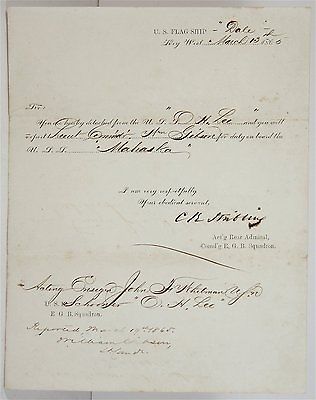 U. S. FLAG SHIP "Dale"
Key West March 19th 1865
Sir:
You are hereby detached from the U. S. S. "O. H. Lee" and you will
report Lieut Comdr. Wm Gibson for duty on board the
U. S. S. "Mahaska"
I am very respectfully
Your obedient servant,
C K Stribling
Act'g Rear Admiral,
Comd'g E. G. B. Squadron.
Acting Ensign John
U. S. Schooner "O. H. Lee"
E. G. B. Squadron.
Reported March 19th 1865.
William Gibson